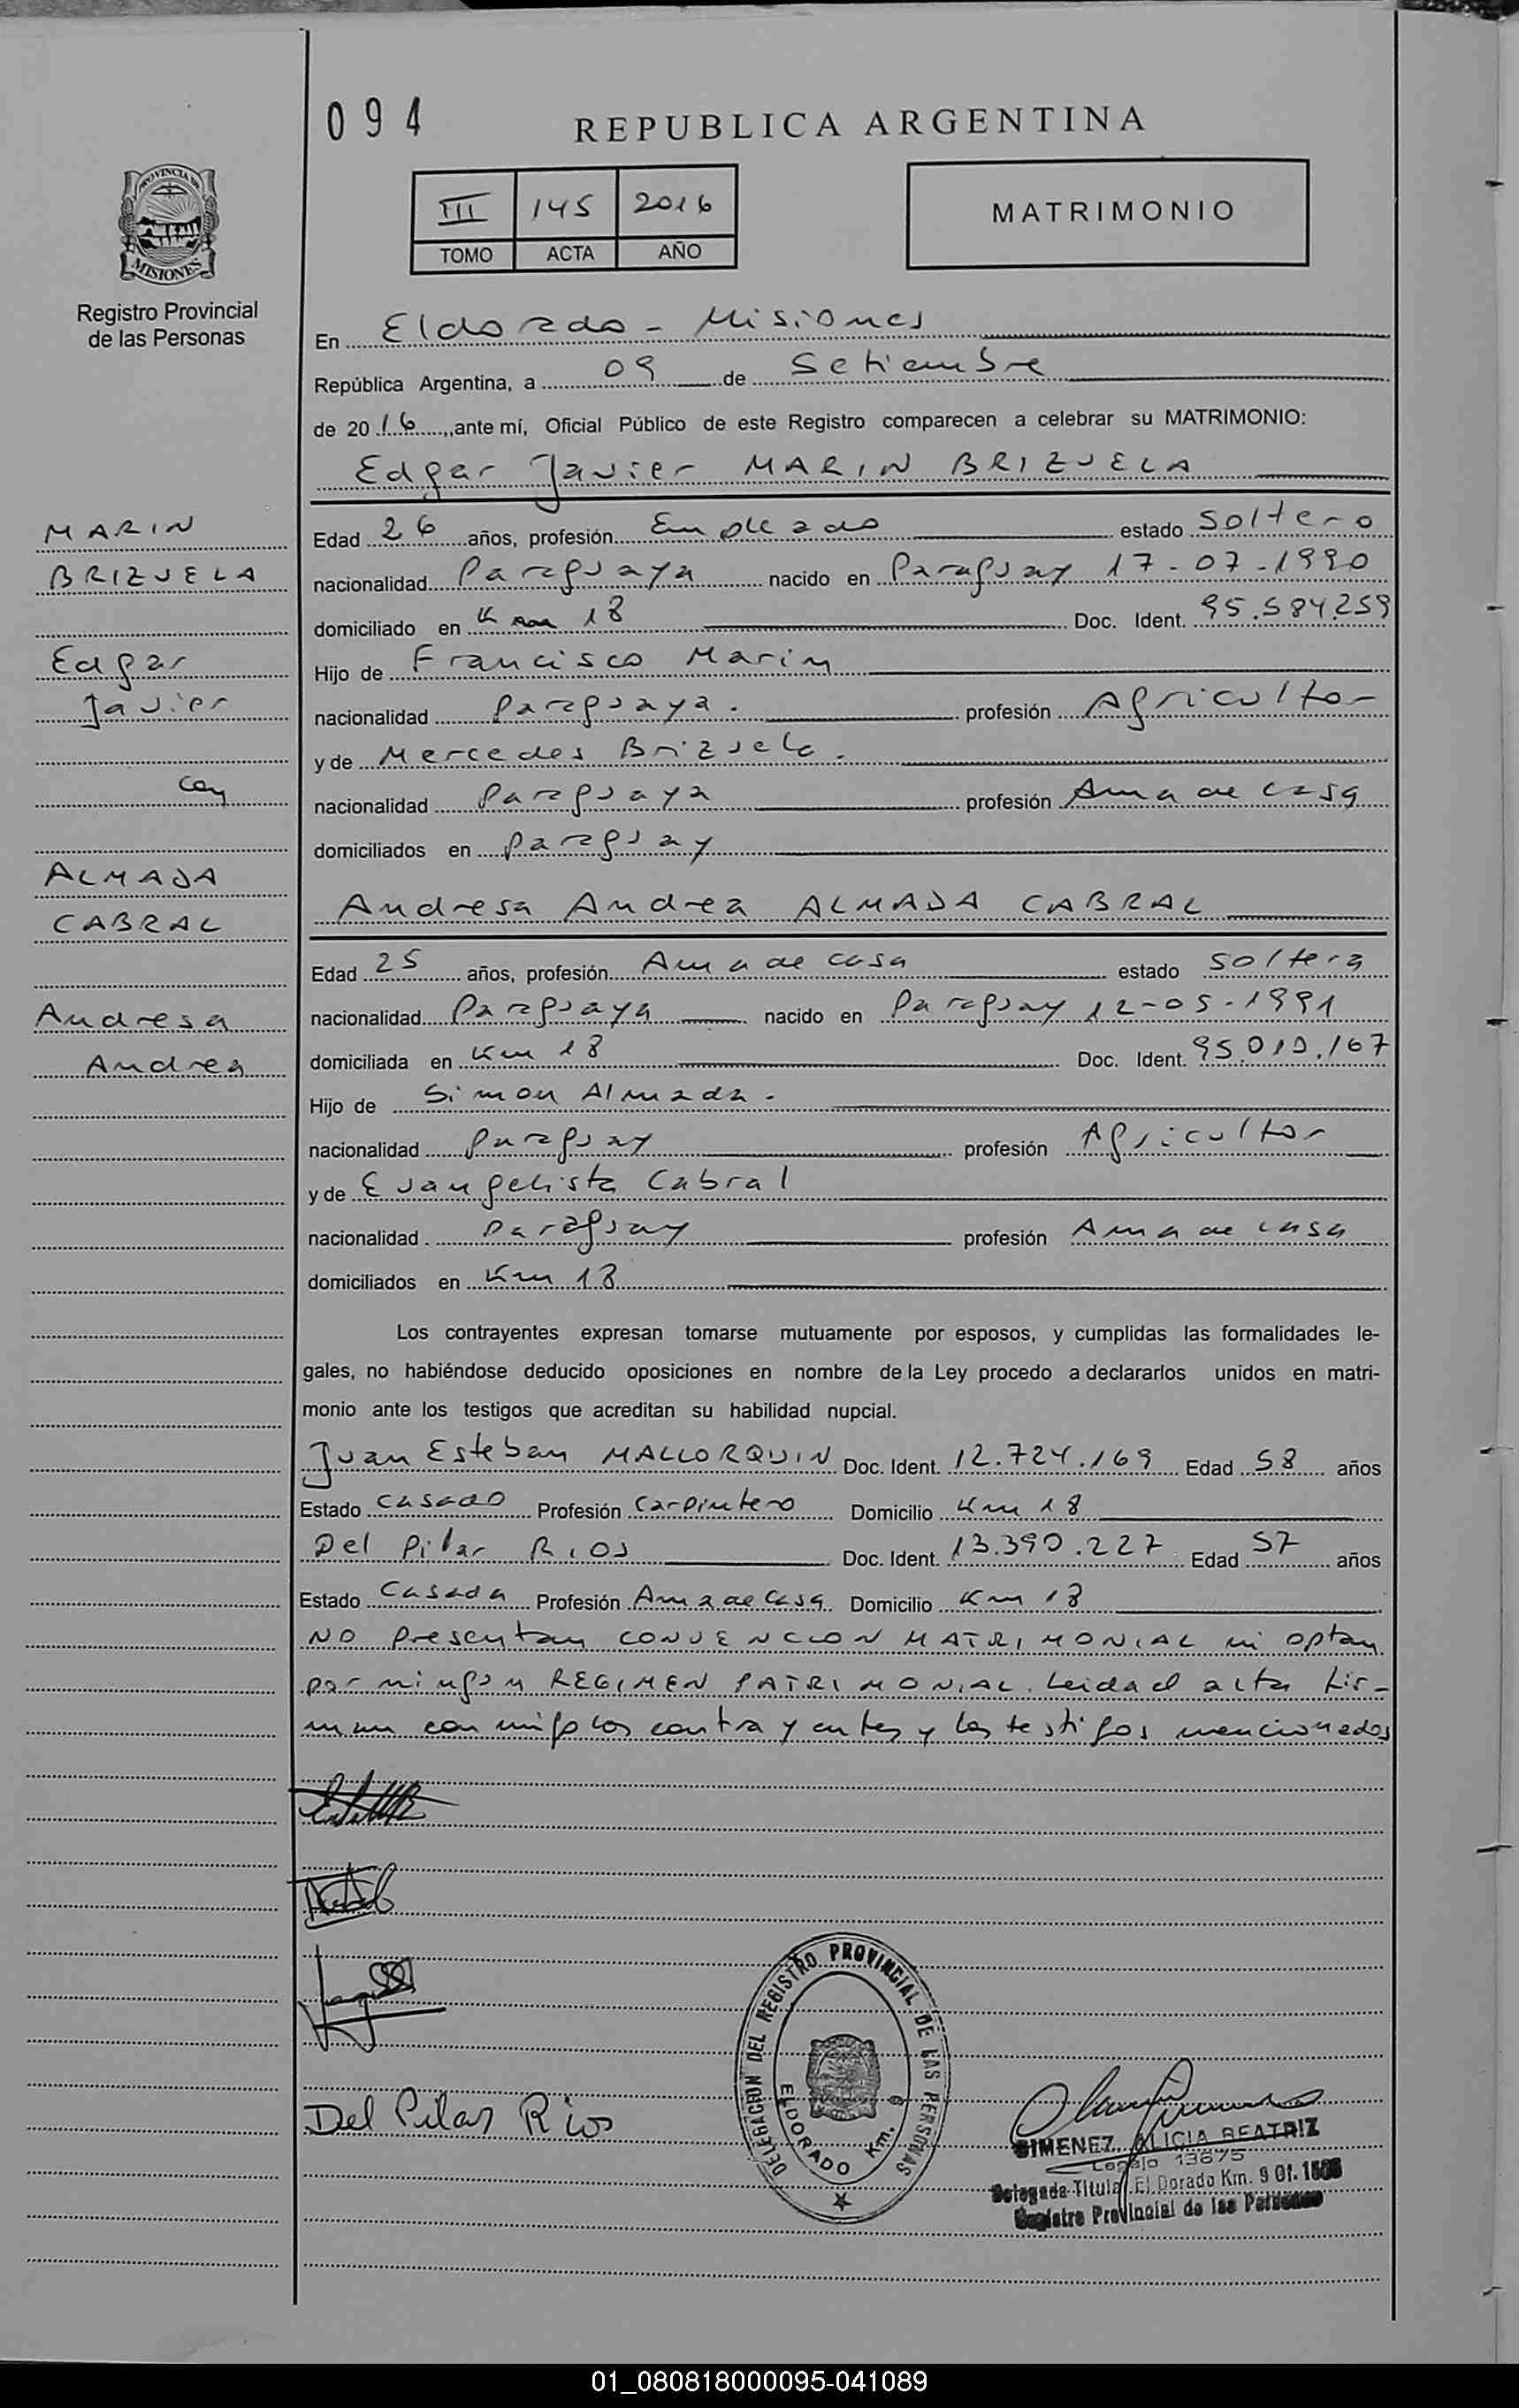 094
REPUBLICA ARGENTINA
PROVINCIA DE
MISIONES
Registro Provincial
de las Personas
III 145 2016
TOMO ACTA AÑO
MATRIMONIO
En Eldorado - Misiones
República Argentina, a 09 de Setiembre
de 2016, ante mí, Oficial Público de este Registro comparecen a celebrar su MATRIMONIO:
Edgar Javier MARIN BRIZUELA
MARIN
BRIZUELA
Edgar
Javier
con
ALMADA
CABRAL
Andresa
Andrea
Edad 26 años, profesión Empleado estado Soltero
nacionalidad Paraguaya nacido en Paraguay 17-07-1990
domiciliado en Km 18 Doc. Ident. 95.584.259
Hijo de Francisco Marin
nacionalidad Paraguaya. profesión Agricultor
y de Mercedes Brizuela.
nacionalidad Paraguaya profesión Ama de casa
domiciliados en Paraguay
Andresa Andrea ALMADA CABRAL
Edad 25 años, profesión Ama de casa estado Soltera
nacionalidad Paraguaya nacido en Paraguay 12-05-1991
domiciliada en Km 18 Doc. Ident. 95.010.167
Hijo de Simon Almada.
nacionalidad Paraguay profesión Agricultor
y de Evangelista Cabral
nacionalidad Paraguay profesión Ama de casa
domiciliados en Km 18
Los contrayentes expresan tomarse mutuamente por esposos, y cumplidas las formalidades le-
gales, no habiéndose deducido oposiciones en nombre de la Ley procedo a declararlos unidos en matri-
monio ante los testigos que acreditan su habilidad nupcial.
Juan Esteban MALLORQUIN Doc. Ident. 12.724.169 Edad 58 años
Estado Casado Profesión Carpintero Domicilio Km 18
Del Pilar RIOS Doc. Ident. 13.390.227 Edad 57 años
Estado Casada Profesión Ama de Casa Domicilio Km 18
NO presentan CONVENCION MATRIMONIAL ni optan
por ningun REGIMEN PATRIMONIAL. Leida el acta fir-
man conmigo los contrayentes y los testigos mencionados
Del Pilar Rios
DELEGACION DEL REGISTRO PROVINCIAL DE LAS PERSONAS
ELDORADO Km. 9
GIMENEZ, ALICIA BEATRIZ
Legajo 13875
Delegada Titular El Dorado Km. 9 Of.
Registro Provincial de las Personas
01_080818000095-041089